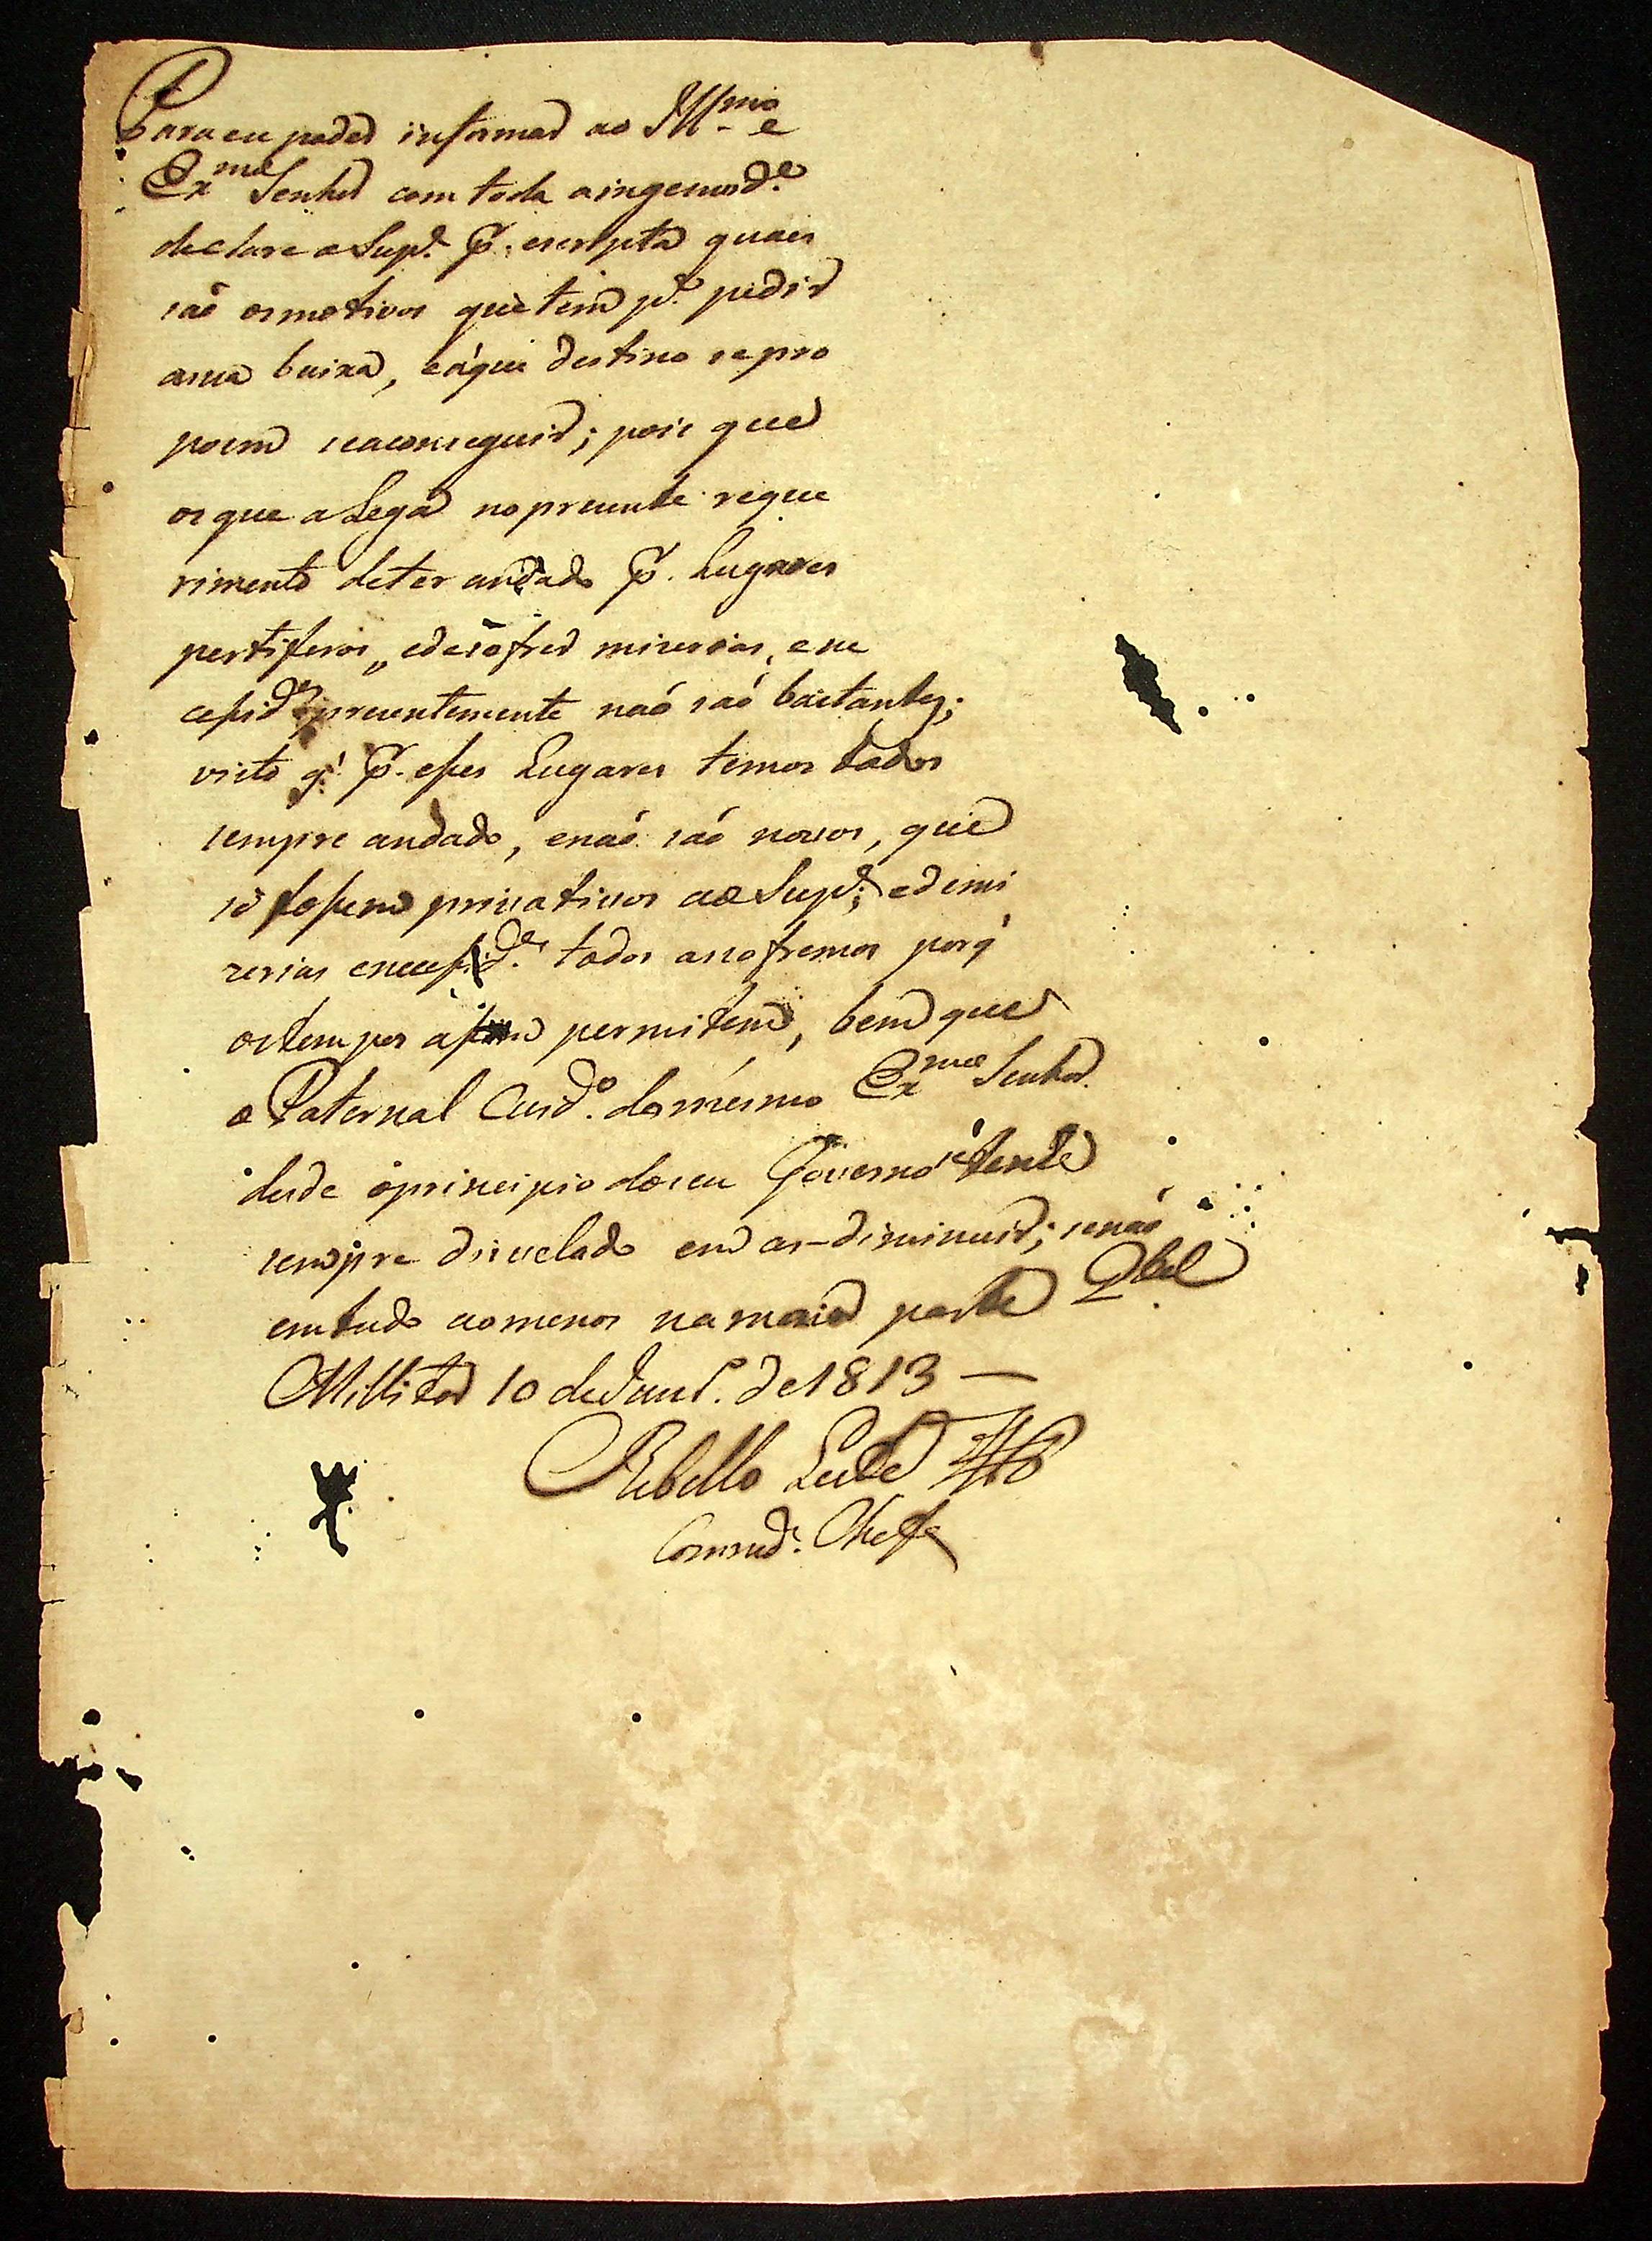 Para eu poder informar ao Ill.mo e
Exmo Senhor com toda a ingenuid.e
declare o Sup.e p. escripta quais
saõ os motivos que tem p.a pedir
a sua baixa, e a que destino se pro
poem se a conseguir; pois que
os que aLega no prezente reque
rimento de ter andado p. Lugares
pestiferos, e de sofrer mizerias, e ne
cessid.es prezentemente naõ saõ bastantes;
visto q.' p. esses Lugares temos todos
sempre andado, e naõ saõ novos, que
só fossem privativos ao Sup.e; e de mi
zerias e necessid.es todos as sofremos porq'
os tempos assim permitem, bem que
o Paternal Cuid.o do mesmo Exmo Senhor
desde o principio do seu Governo se tem
sempre disvelado em as diminuir; se naõ
em tudo ao menos na maior parte Q.bel
Millitar 10 de Jan.o de 1813 —
Rebello Leite
Comd.e Chefe